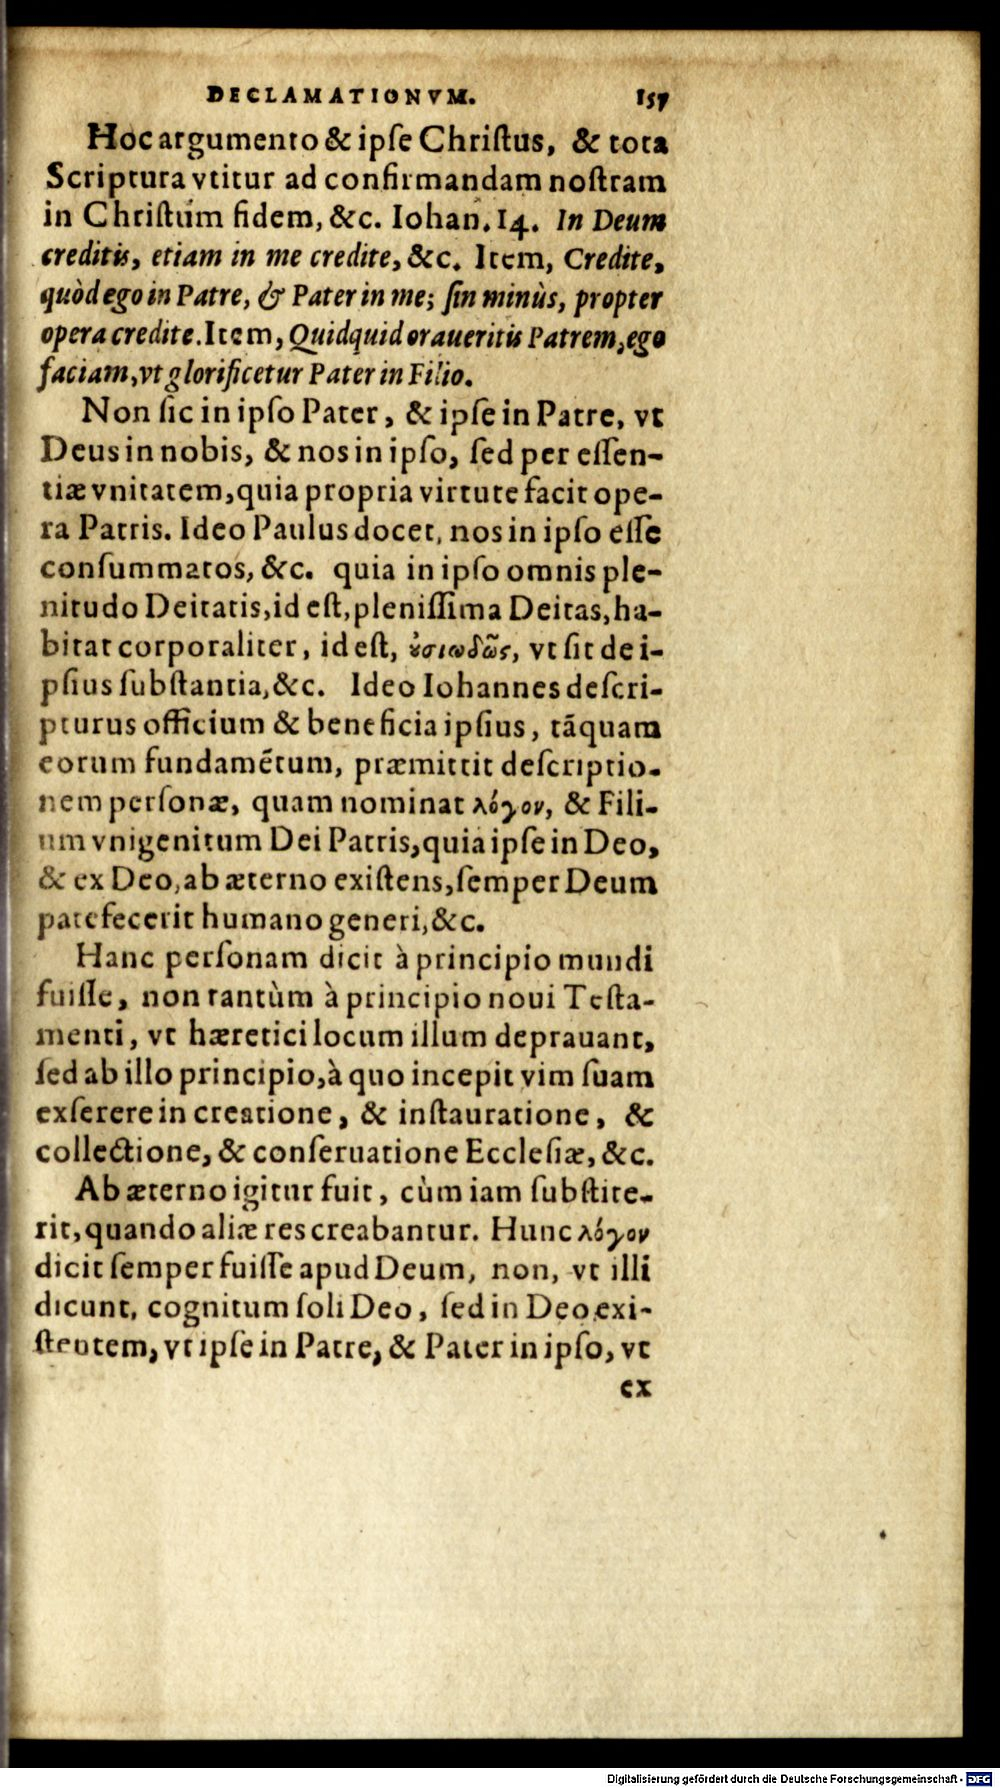 DECLAMATIONVM. 157
Hoc argumento & ipſe Chriſtus, & tota
Scriptura vtitur ad confirmandam noſtram
in Chriſtum fidem, &c. Iohan. 14. In Deum
creditis, etiam in me credite, &c. Item, Credite,
quòd ego in Patre, & Pater in me; ſin minùs, propter
opera credite. Item, Quidquid oraueritis Patrem, ego
faciam, vt glorificetur Pater in Filio.
Non ſic in ipſo Pater, & ipſe in Patre, vt
Deus in nobis, & nos in ipſo, ſed per eſſen-
tiæ vnitatem, quia propria virtute facit ope-
ra Patris. Ideo Paulus docet, nos in ipſo eſſe
conſummatos, &c. quia in ipſo omnis ple-
nitudo Deitatis, id eſt, pleniſſima Deitas, ha-
bitat corporaliter, id eſt, ȣ̓σιωδῶς, vt ſit de i-
pſius ſubſtantia, &c. Ideo Iohannes deſcri-
pturus officium & beneficia ipſius, tãquam
eorum fundamẽtum, præmittit deſcriptio-
nem perſonæ, quam nominat λόγον, & Fili-
um vnigenitum Dei Patris, quia ipſe in Deo,
& ex Deo, ab æterno exiſtens, ſemper Deum
patefecerit humano generi, &c.
Hanc perſonam dicit à principio mundi
fuiſſe, non tantùm à principio noui Teſta-
menti, vt hæretici locum illum deprauant,
ſed ab illo principio, à quo incepit vim ſuam
exſerere in creatione, & inſtauratione, &
collectione, & conſeruatione Eccleſiæ, &c.
Ab æterno igitur fuit, cùm iam ſubſtite-
rit, quando aliæ res creabantur. Hunc λόγον
dicit ſemper fuiſſe apud Deum, non, vt illi
dicunt, cognitum ſoli Deo, ſed in Deo exi-
ſtentem, vt ipſe in Patre, & Pater in ipſo, vt
ex
Digitalisierung gefördert durch die Deutsche Forschungsgemeinschaft - DFG